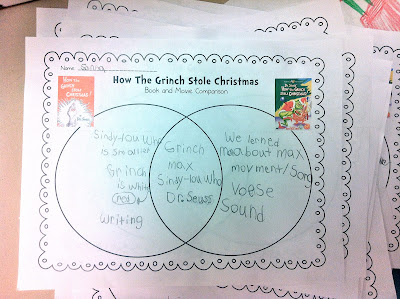 Name:
How The Grinch Stole Christmas
Book and Movie Comparison
HOW THE
GRINCH
STOLE
CHRISTMAS!
Sindy-Lou Who
is smaller
Grinch
is white
red
writing
Grinch
max
Sindy-Lou Who
Dr. Seuss
We lerned
more about max
movment/Song
Voese
Sound